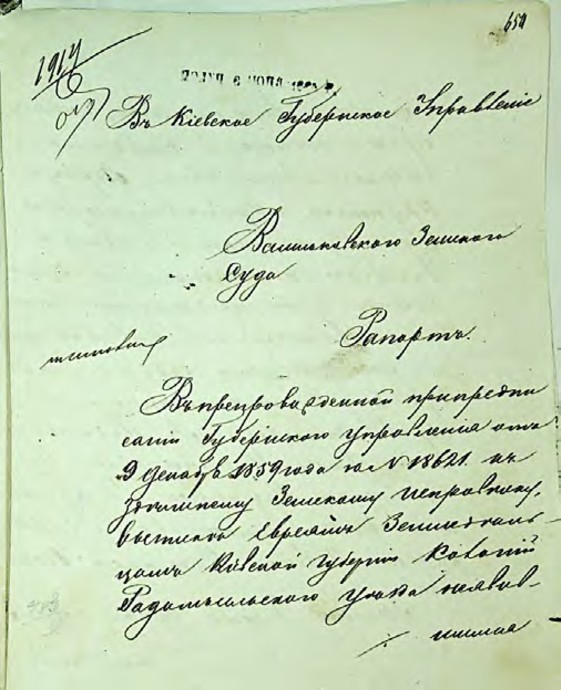 651
1914
Въ Кіевское Губернское Управленіе
Васильковскаго Земскаго
Суда
Рапортъ.
Въ препровожденной при предпи
саніи Губернскаго Управленія отъ
9 декабря 1859 года за № 18621 къ
здешнему Земскому Исправнику,
Евреямъ Земледель-
цамъ Кіевской Губерніи
Радомысльского уезда